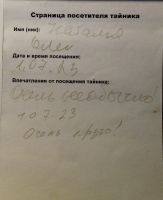 Страница посетителя тайника
Имя (ник): Наталия
Олег
Дата и время посещения:
1.07.23
Впечатления от посещения тайника:
Очень необычно
1.07.23
Очень круто!